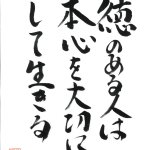 徳のある人は
本心を大切に
して生きる